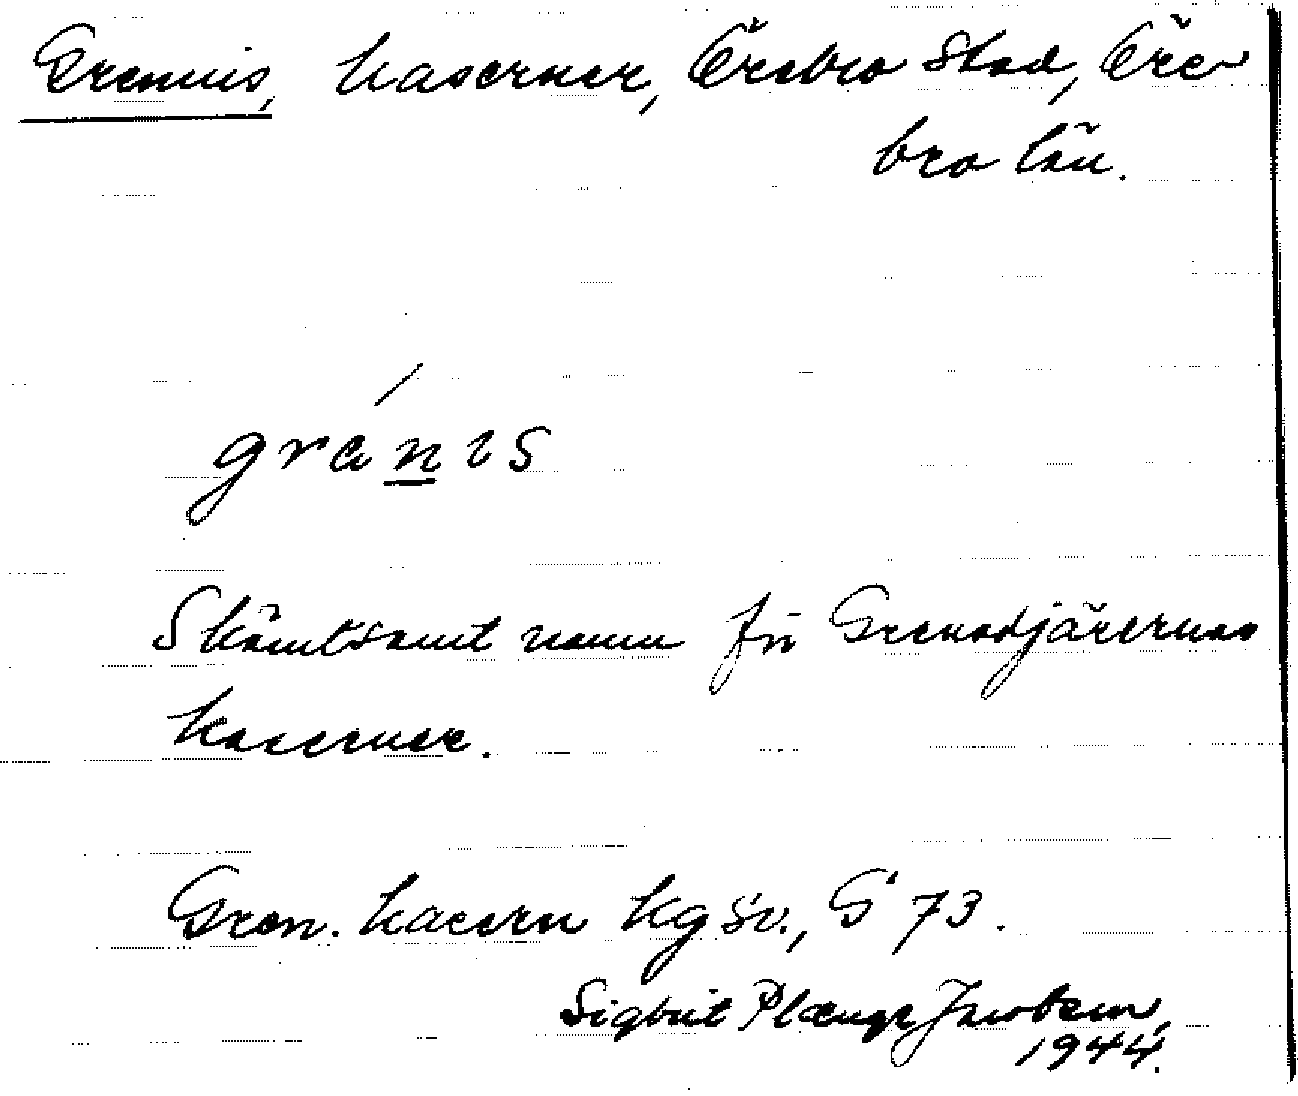 Grennis, kaserner, Örebro Stad, Öre
bro län.
gránis
Skämtsamt namn för Grenadjärernas
kaserner.
Gren. kasern kgsv., G 73.
Sigbrit Plænge Jacobson,
1944.